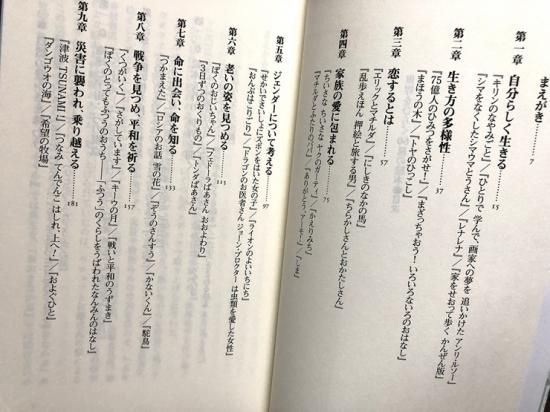 まえがき……7
第一章 自分らしく生きる……15
『キリンのなやみごと』／『ひとりで学んで、画家への夢を追いかけた アンリ・ルソー』
『シマをなくしたシマウマとうさん』／『レナレナ』
第二章 生き方の多様性……37
『75億人のひみつをさがせ！』／『まざっちゃおう！ いろいろないろのおはなし』
『まほうの木』／『トナのひっこし』／『家をせおって歩く かんぜん版』
第三章 恋するとは……57
『エリックとマチルダ』／『にしきのなかの馬』
『乱歩えほん 押絵と旅する男』／『ちらかしさんとおかたしさん』
第四章 家族の愛に包まれる……75
『ちいさな ちいさな ヤクのガーティ』／『かえりみち』
『マチルダとふたりのパパ』／『ありがとう、アーモ！』／『いま』
第五章 ジェンダーについて考える……97
『せかいでさいしょにズボンをはいた女の子』／『ライオンのよいいちにち』
『おはなはこりごり』／『ドラゴンのお医者さん ジョーン・プロクターは虫類を愛した女性』
第六章 老いの姿を見つめる……115
『ぼくのおじいちゃん』／『フェドーラばあさん おおよわり』
『3日ずつのおくりもの』／『トンダばあさん』
第七章 命に出会い、命を知る……133
『つかまえた』／『ロシアのお話 雪の花』／『ぞうのさんすう』／『かないくん』／『駝鳥』
第八章 戦争を見つめ、平和を祈る……157
『くつがいく』／『さがしています』／『キーウの月』／『戦いと平和のうずまき』
『ぼくのとってもふつうのおうち――「ふつう」のくらしをうばわれたなんみんのはなし』
第九章 災害に襲われ、乗り越える……181
『津波 TSUNAMI!』／『つなみ てんでんこ はしれ、上へ！』／『およぐひと』
『ダンゴウオの海』／『希望の牧場』